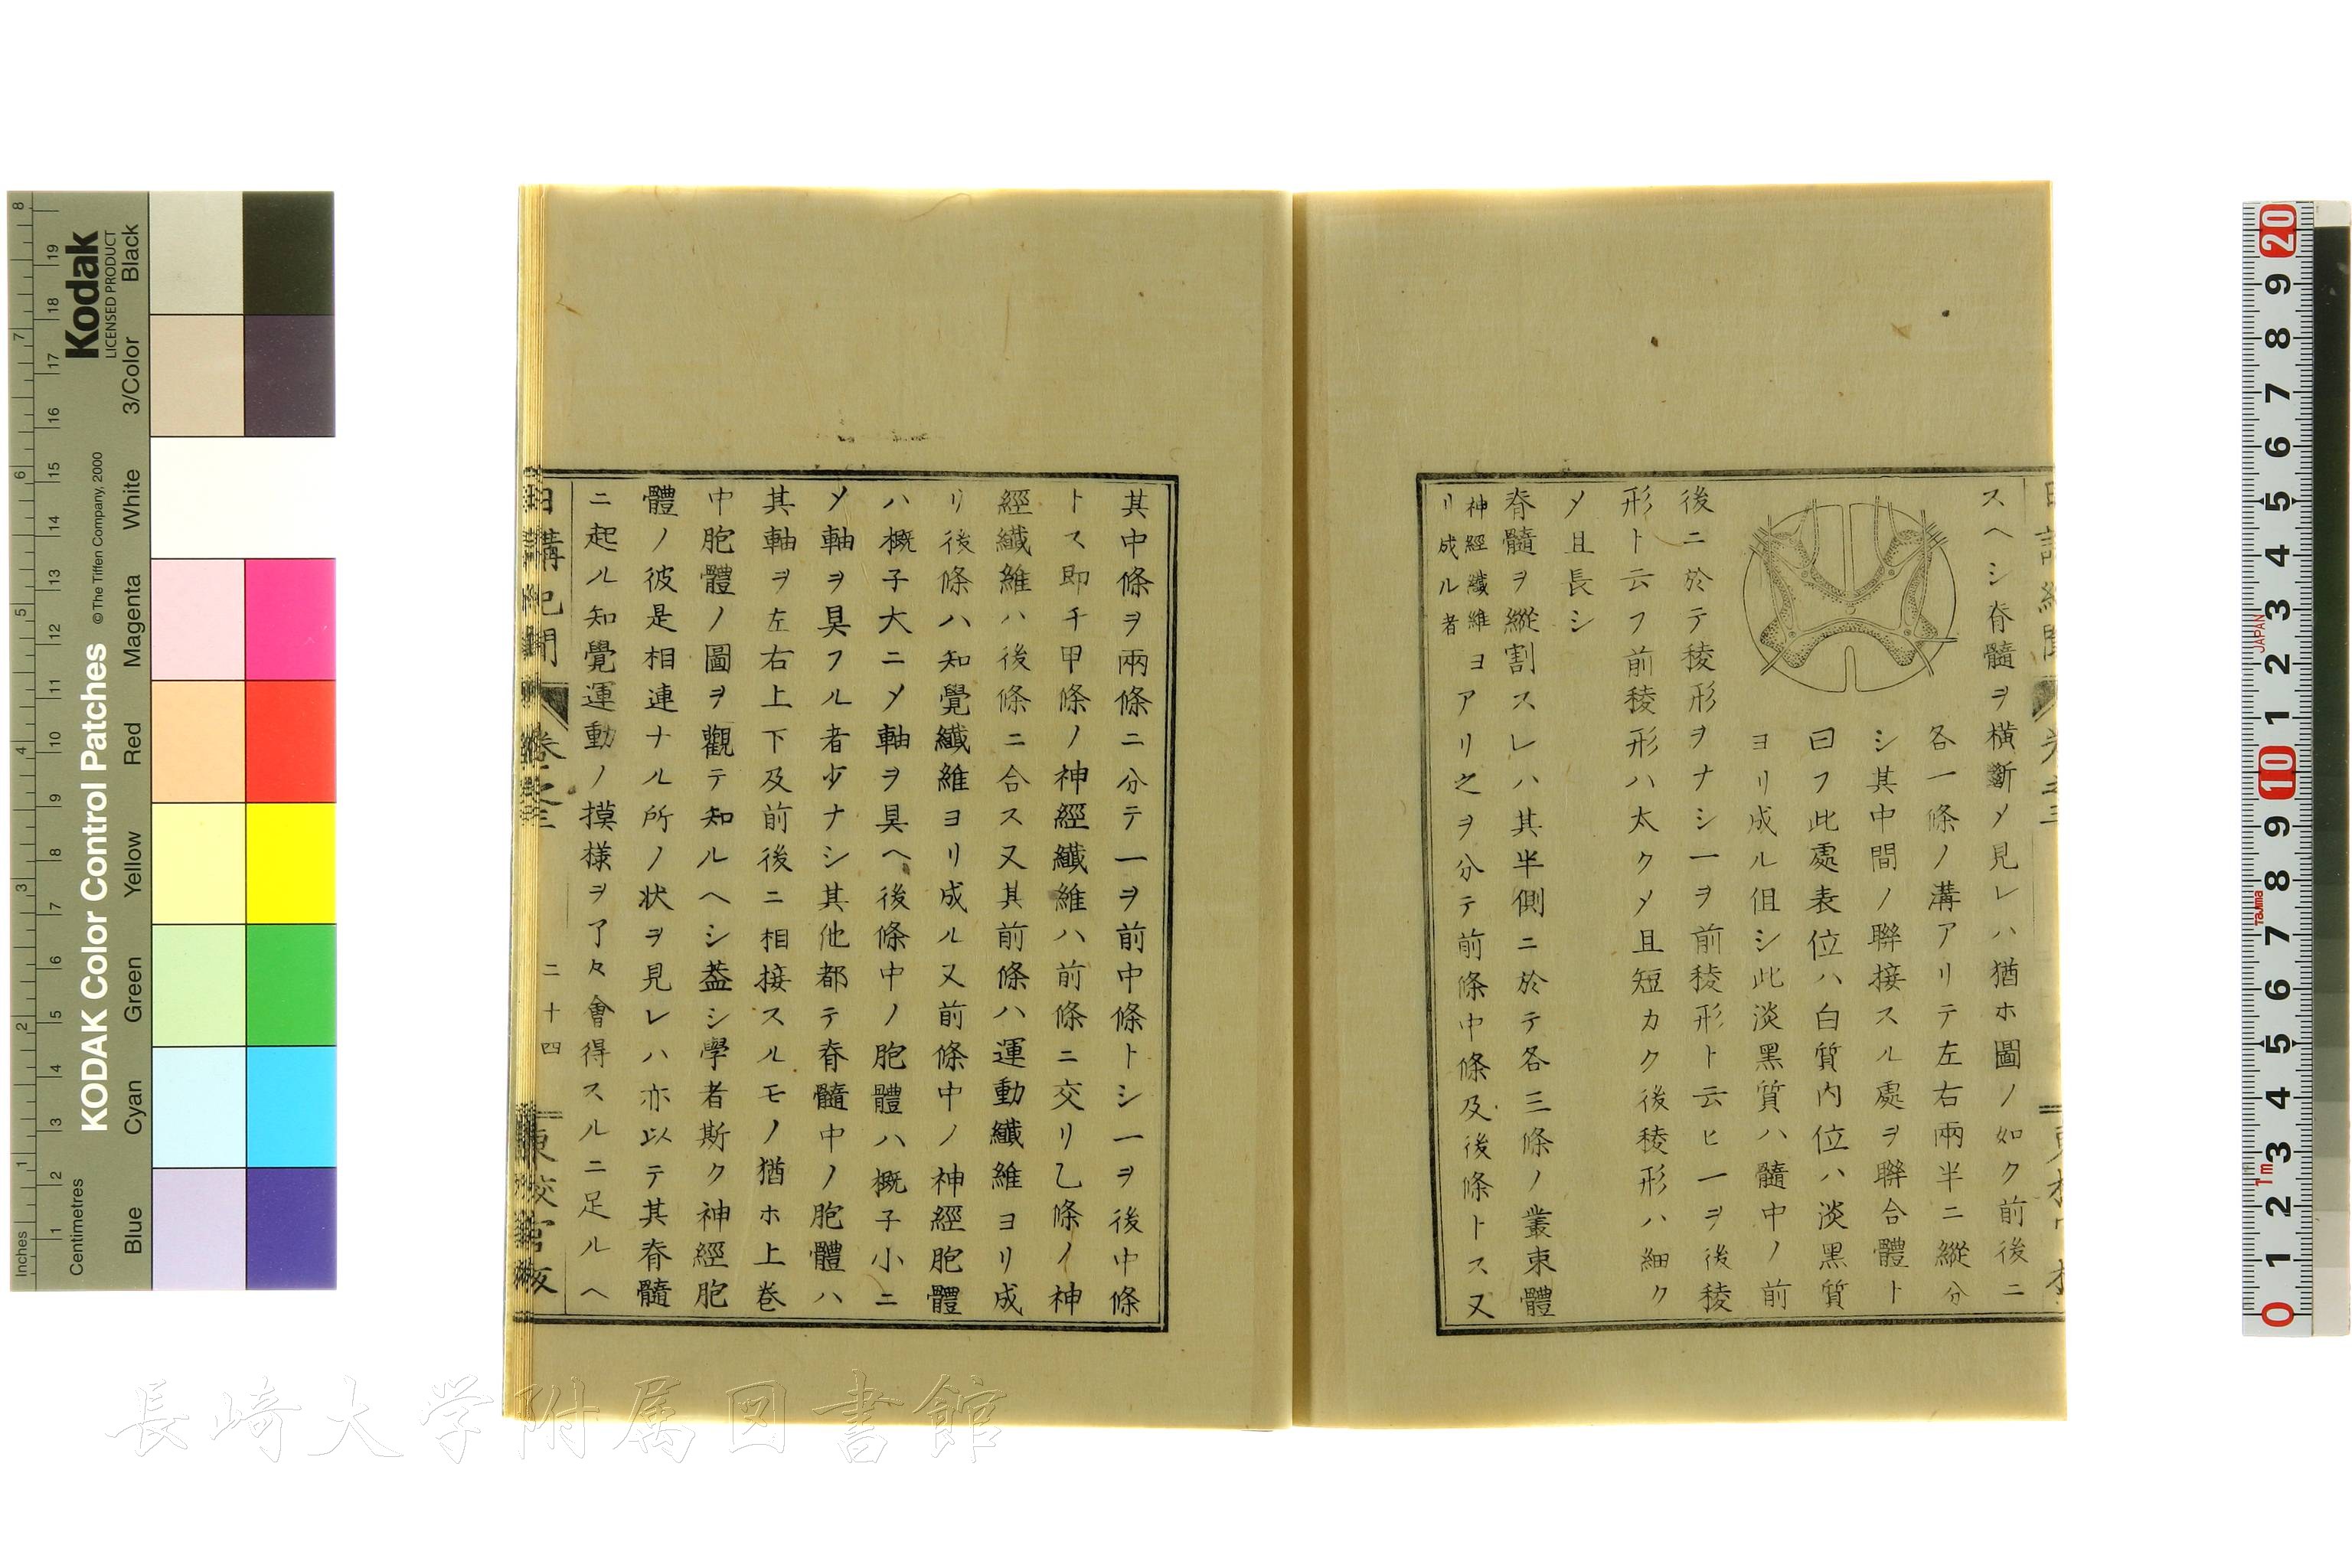 スヘシ脊髓ヲ横斷メ見レハ猶ホ圖ノ如ク前後ニ
各一條ノ溝アリテ左右兩半ニ縱分
シ其中間ノ聯接スル處ヲ聯合體ト
曰フ此處表位ハ白質内位ハ淡黑質
ヨリ成ル但シ此淡黑質ハ髓中ノ前
後ニ於テ稜形ヲナシ一ヲ前稜形ト云ヒ一ヲ後稜
形ト云フ前稜形ハ太クメ且短カク後稜形ハ細ク
メ且長シ
脊髓ヲ縱割スレハ其半側ニ於テ各三條ノ叢束體
神經纖維ヨ
リ成ル者
アリ之ヲ分テ前條中條及後條トス又
其中條ヲ兩條ニ分テ一ヲ前中條トシ一ヲ後中條
トス即チ甲條ノ神經纖維ハ前條ニ交リ乙條ノ神
經纖維ハ後條ニ合ス又其前條ハ運動纖維ヨリ成
リ後條ハ知覺纖維ヨリ成ル又前條中ノ神經胞體
ハ概子大ニメ軸ヲ具ヘ後條中ノ胞體ハ概子小ニ
メ軸ヲ具フル者少ナシ其他都テ脊髓中ノ胞體ハ
其軸ヲ左右上下及前後ニ相接スルモノ猶ホ上巻
中胞體ノ圖ヲ觀テ知ルヘシ葢シ學者斯ク神經胞
體ノ彼是相連ナル所ノ状ヲ見レハ亦以テ其脊髓
ニ起ル知覺運動ノ摸様ヲ了々會得スルニ足ルヘ
日講記聞 巻之三 二十四
Kodak
LICENSED PRODUCT
KODAK Color Control Patches
© The Tiffen Company, 2000
Inches
Centimetres
Blue Cyan Green Yellow Red Magenta White 3/Color Black
JAPAN
Tajima
1m
長崎大学附属図書館